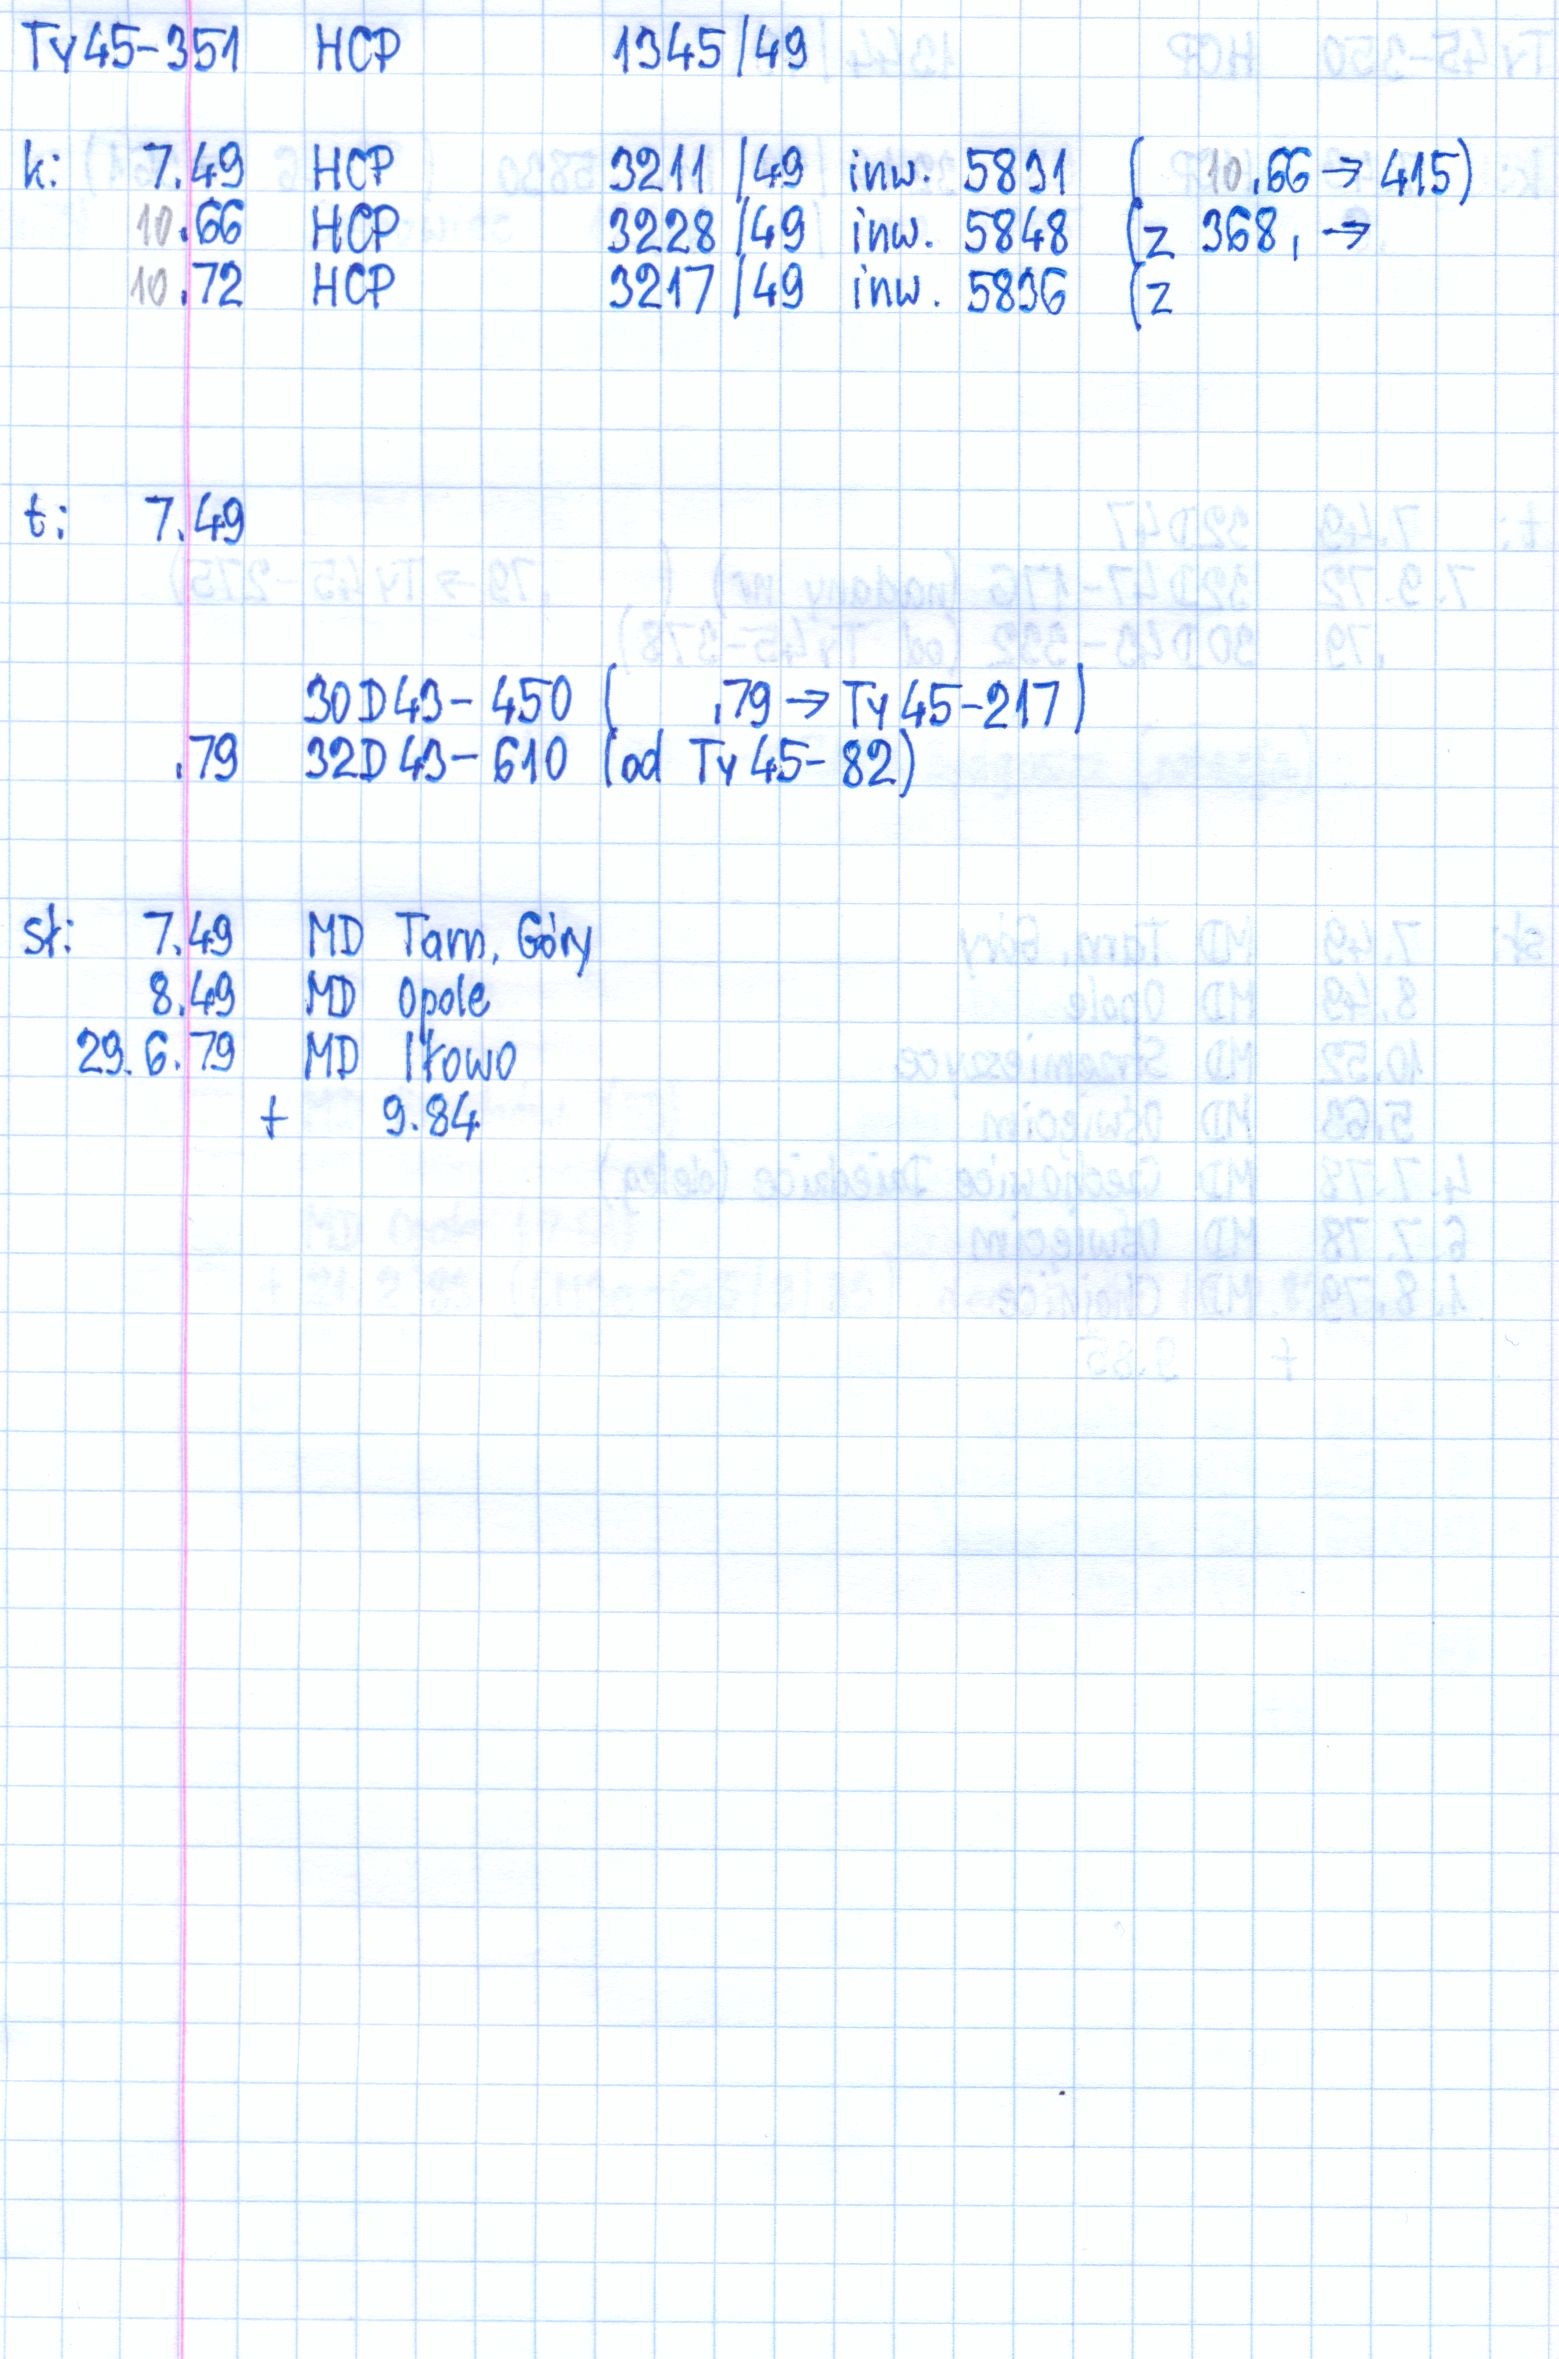 Ty45-351 HCP 1345/49
k: 7.49 HCP 3211/49 inw. 5831 ( 10.66 → 415)
10.66 HCP 3228/49 inw. 5848 (z 368, →
10.72 HCP 3217/49 inw. 5836 (z
t: 7.49
30D43-450 ( .79 → Ty45-217)
.79 32D43-610 (od Ty45-82)
sł: 7.49 MD Tarn. Góry
8.49 MD Opole
29.6.79 MD Iłowo
+ 9.84